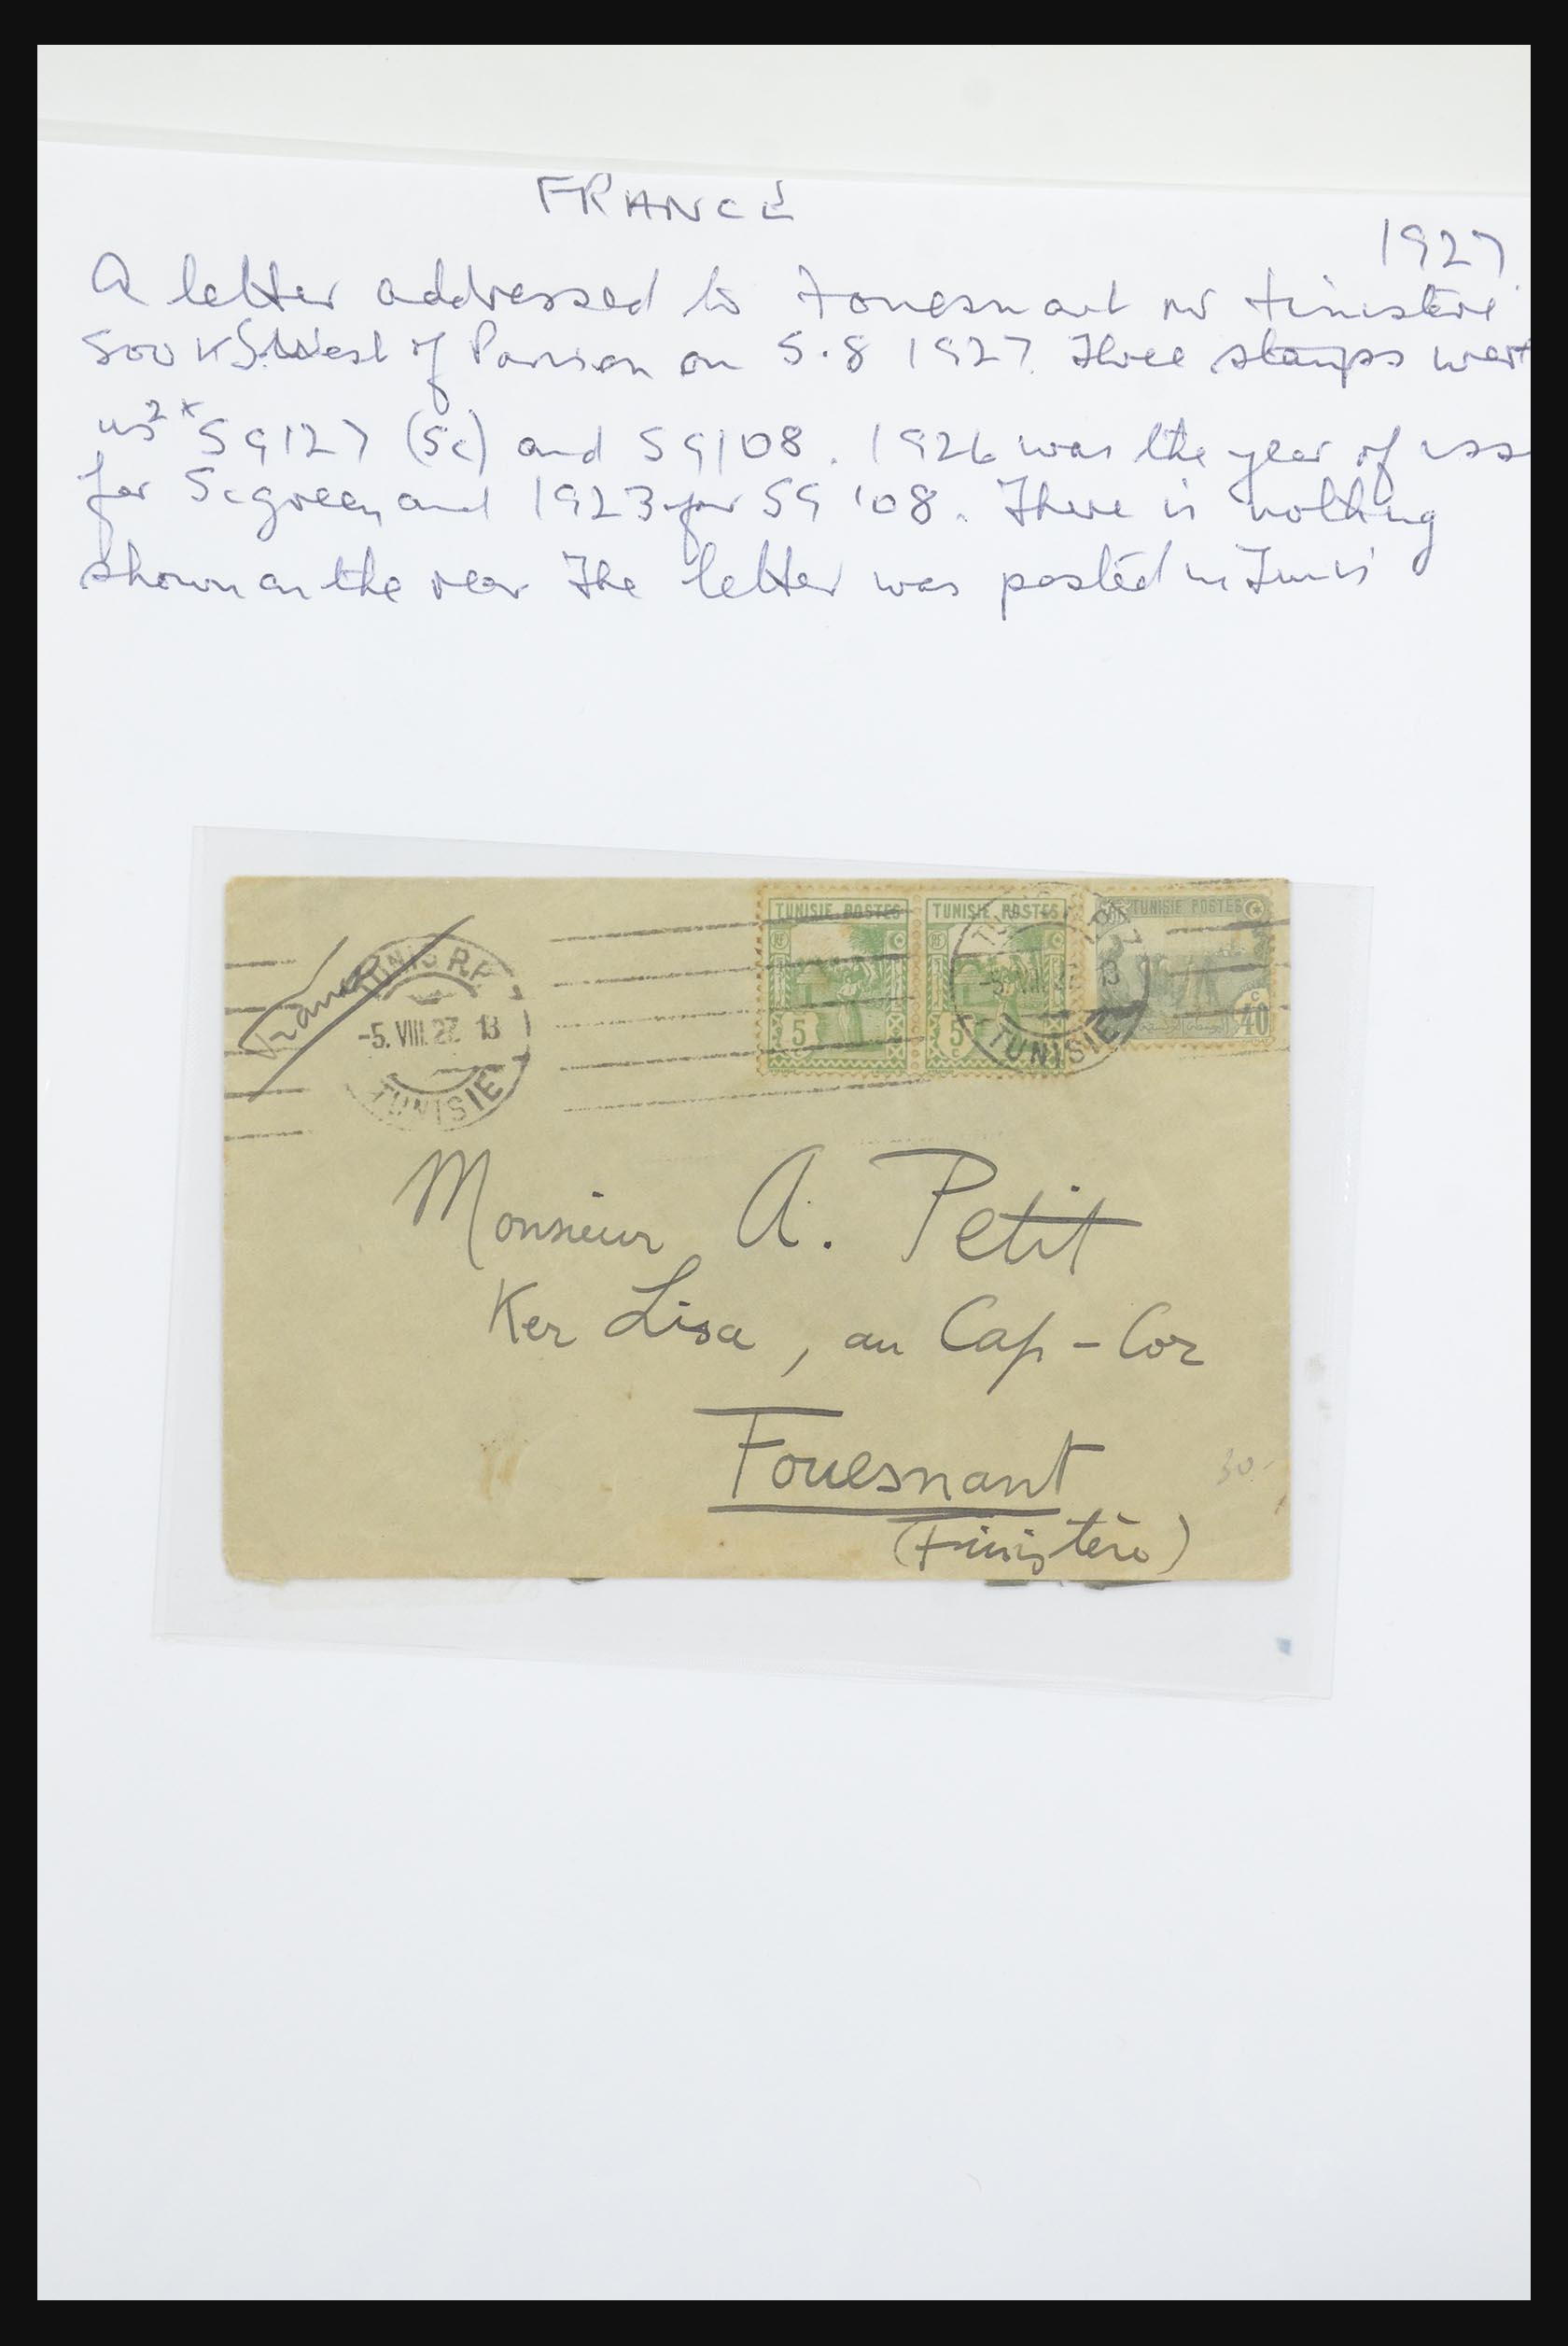 FRANCE
1927
A letter addressed to Fouesnant nr Finistère
500 K S.West of on 5.8 1927. Three stamps were
us 2x SG127 (5c) and SG108. 1926 was the year of iss
for 5c green and 1923 for SG 108. There is nothing
shown on the rear The letter was posted in Tunis
France
TUNIS RP
-5. VIII. 27 13
TUNISIE
TUNISIE POSTES
RF
5
TUNISIE POSTES
RF
5
C
TUNISIE POSTES
C
40
13
TUNISIE
Monsieur A. Petit
Ker Lisa, au Cap-Coz
Fouesnant
(Finistère)
30-